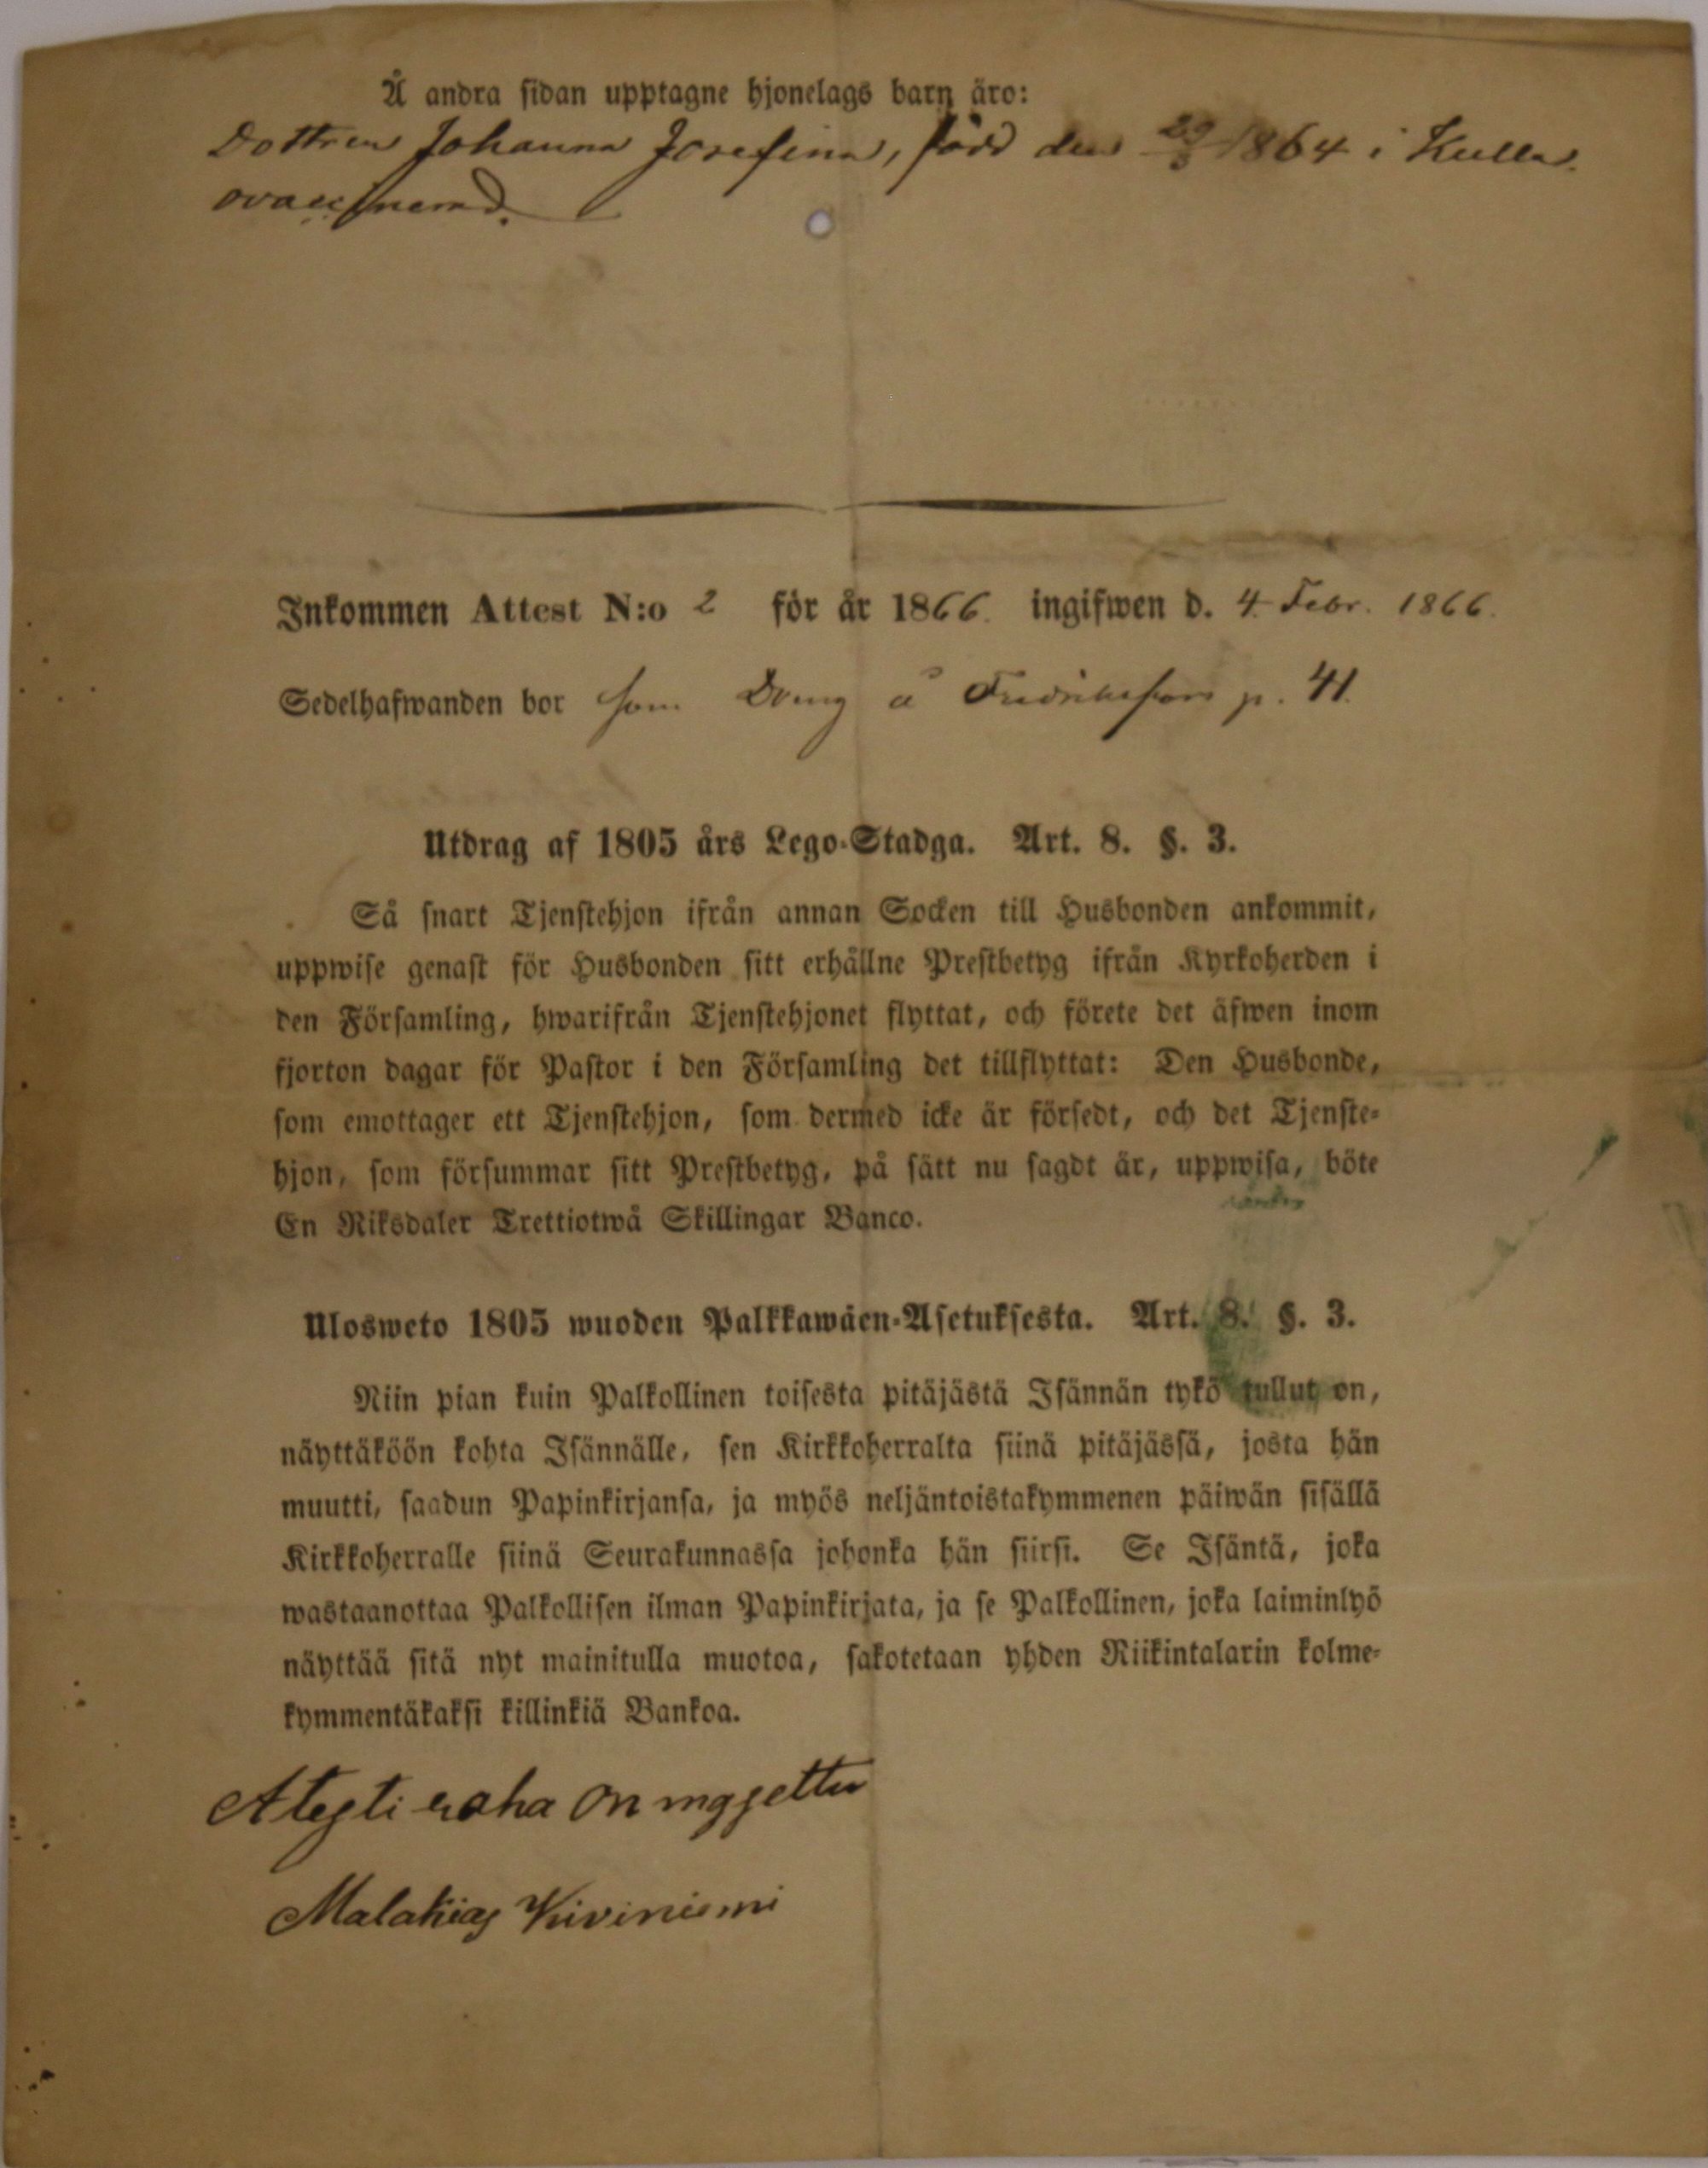 Å andra sidan upptagne hjonelags barn äro:
Dottren Johanna Josefina, född den 29/3 1864 i Kulla.
ovaccinerad.
Inkommen Attest N:o 2 för år 1866. ingifwen d. 4. Febr. 1866.
Sedelhafwanden bor som Dräng å Fredriksfors p. 41.
Utdrag af 1805 års Lego-Stadga. Art. 8. §. 3.
Så snart Tjenstehjon ifrån annan Socken till Husbonden ankommit,
uppwise genast för Husbonden sitt erhållne Prestbetyg ifrån Kyrkoherden i
den Församling, hwarifrån Tjenstehjonet flyttat, och förete det äfwen inom
fjorton dagar för Pastor i den Församling det tillflyttat: Den Husbonde,
som emottager ett Tjenstehjon, som dermed icke är försedt, och det Tjenste-
hjon, som försummar sitt Prestbetyg, på sätt nu sagdt är, uppwisa, böte
En Riksdaler Trettiotwå Skillingar Banco.
Ulosweto 1805 wuoden Palkkawäen-Asetuksesta. Art. 8. §. 3.
Niin pian kuin Palkollinen toisesta pitäjästä Isännän tykö tullut on,
näyttäköön kohta Isännälle, sen Kirkkoherralta siinä pitäjässä, josta hän
muutti, saadun Papinkirjansa, ja myös neljäntoistakymmenen päiwän sisällä
Kirkkoherralle siinä Seurakunnassa johonka hän siirsi. Se Isäntä, joka
wastaanottaa Palkollisen ilman Papinkirjata, ja se Palkollinen, joka laiminlyö
näyttää sitä nyt mainitulla muotoa, sakotetaan yhden Riikintalarin kolme-
kymmentäkaksi killinkiä Bankoa.
Atesti raha on maksettu
Malakias Kiviniemi